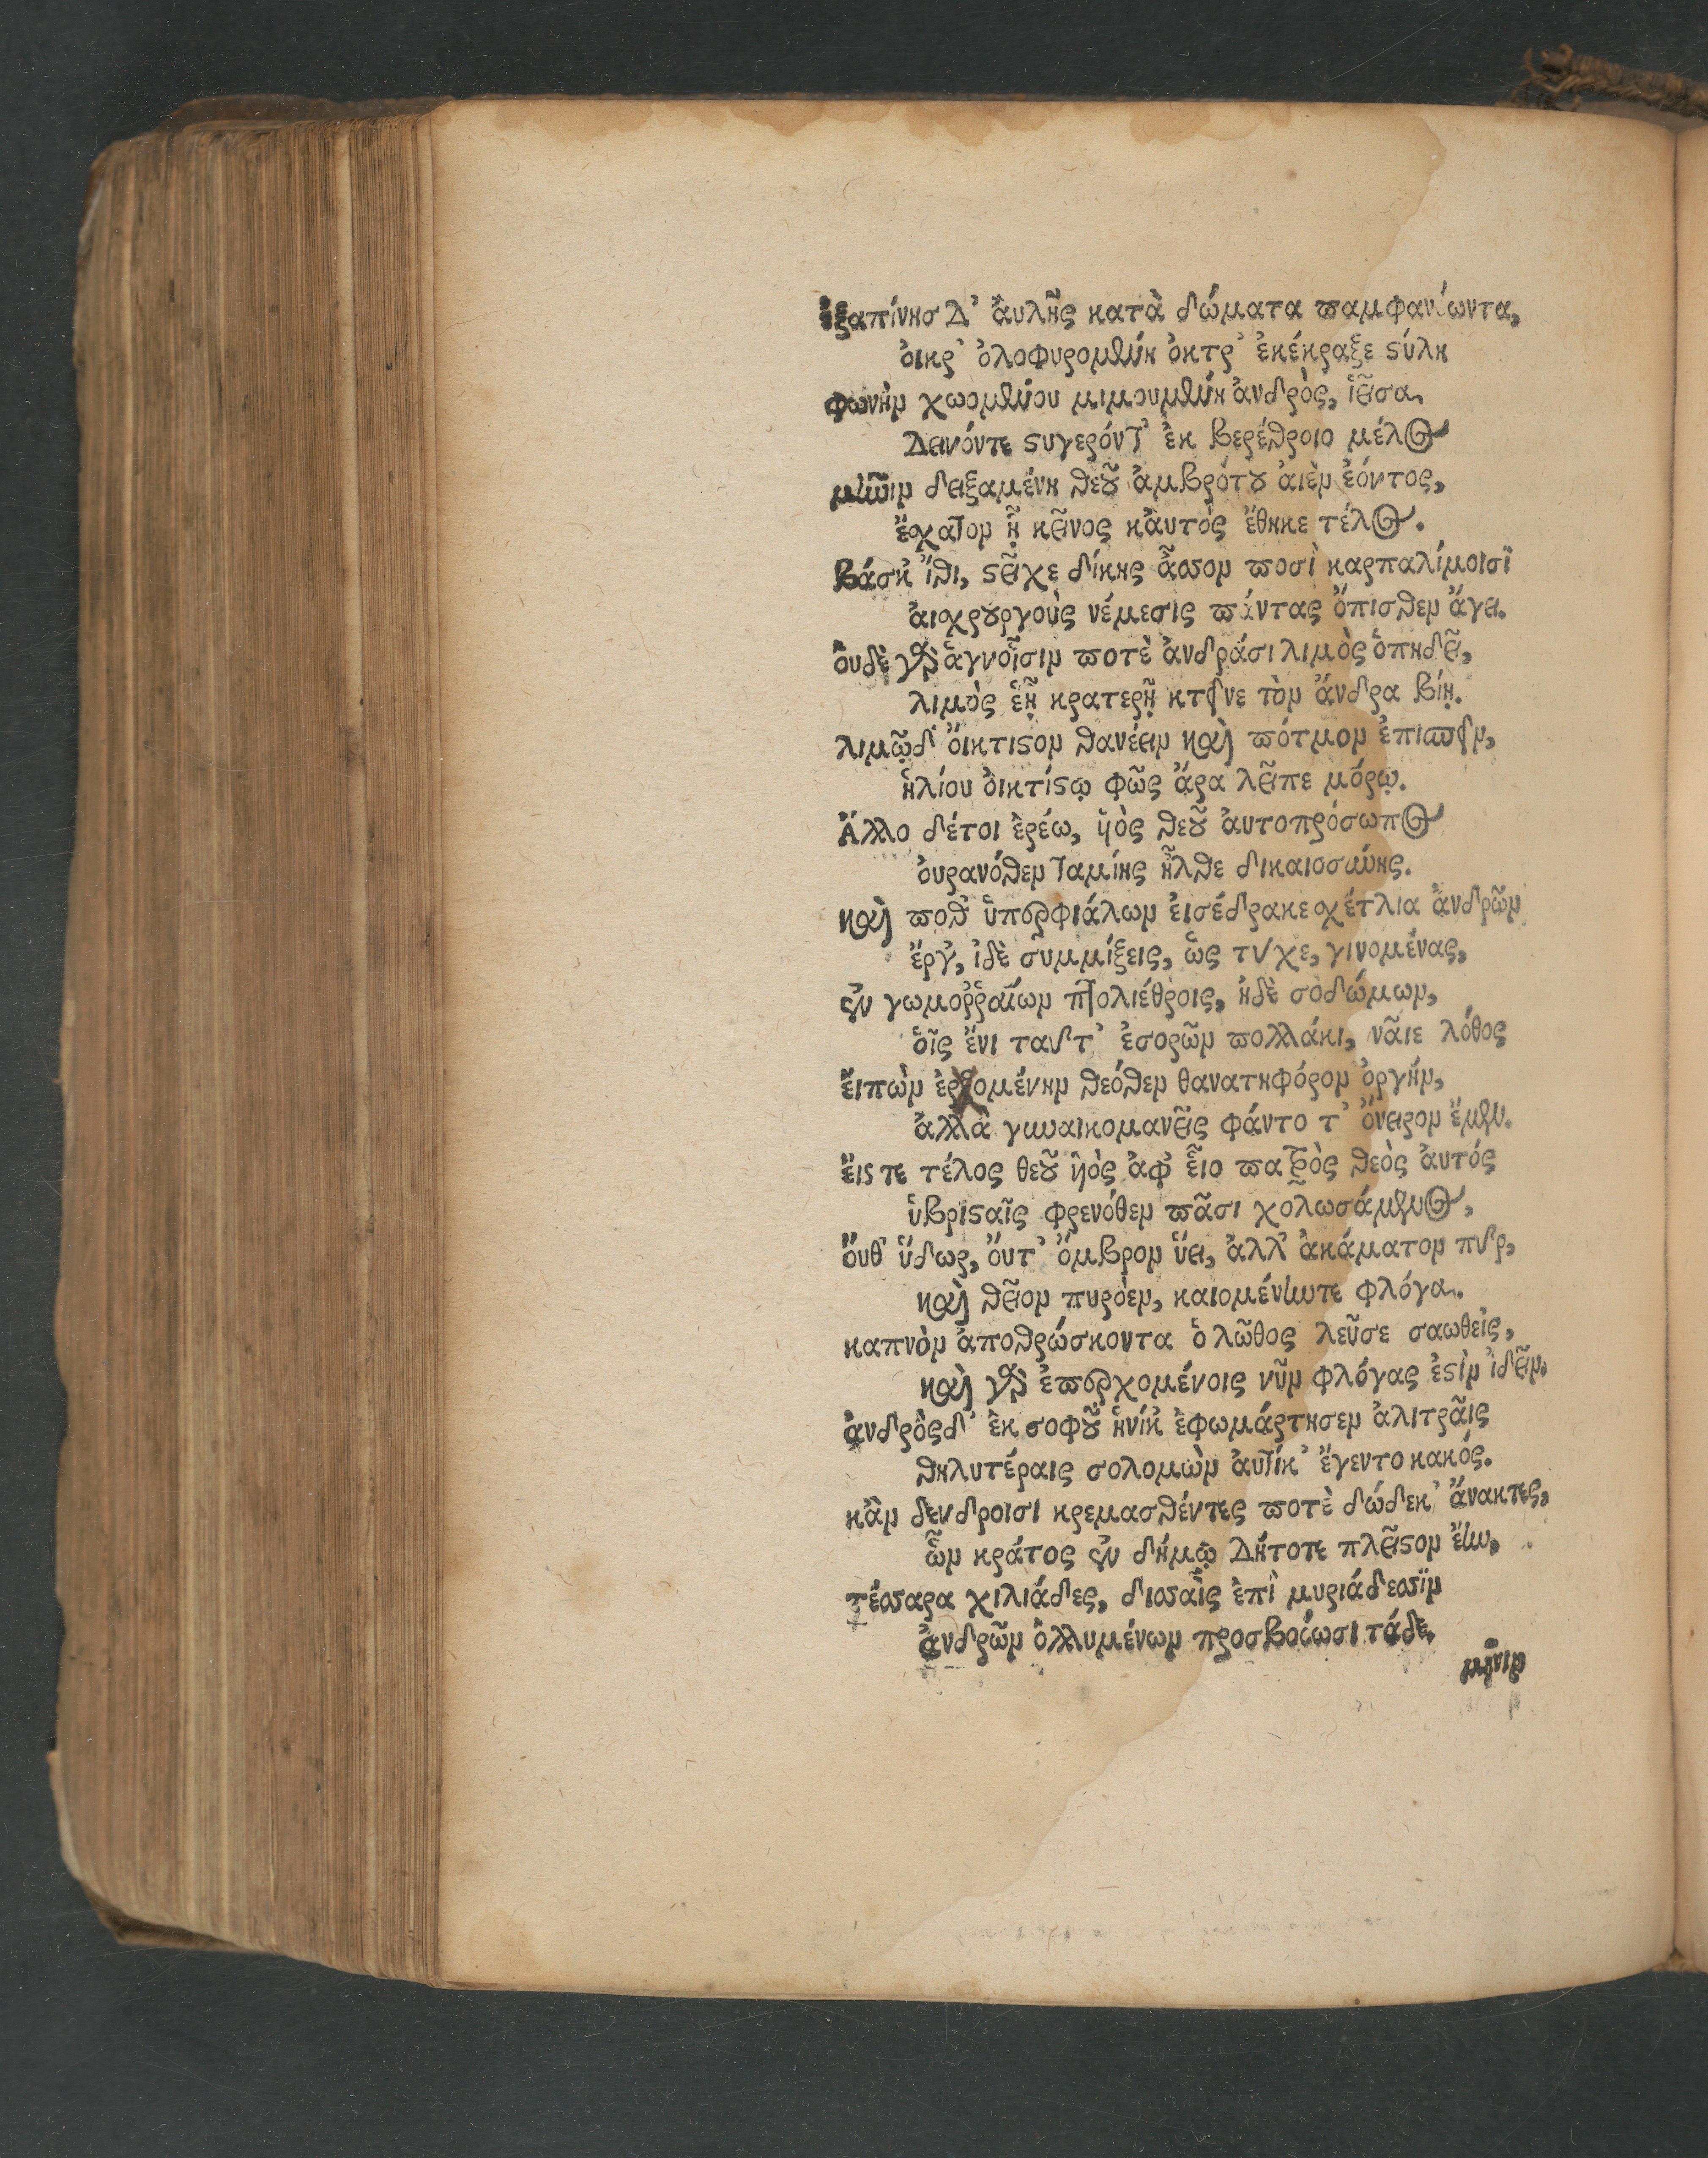 ἐξαπίνησ Δ' ἀυλῆς κατὰ δώματα παμφανόωντα,
ὀικρ' ὀλοφυρομένη ὀκτρ' ἐκέκραξε στύλη
φωνὴν χωομένου μιμουμένη ἀνδρὸς, ἱεῖσα
Δεινόντε στυγερόντ' ἐκ βερέθροιο μέλος
μῆνιν δειξαμένη θεοῦ ἀμβρότου ἀιὲν ἐόντος,
ἔσχατον ᾗ κεῖνος κἀυτὸς ἔθηκε τέλος.
Βάσκ' ἴθι, στεῖχε δίκης ἆσσον ποσὶ καρπαλίμοισϊ
ἀισχρουργοὺς νέμεσις πάντας ὄπισθεν ἄγει.
ὀυδὲ γὰρ ἁγνοῖσιν ποτὲ ἀνδράσι λιμὸς ὀπηδεῖ,
λιμὸς ἑῇ κρατερῇ κτεῖνε τὸν ἄνδρα βίῃ.
λιμῷδ' ὄικτιστον θανέειν καὶ πότμον ἐπισπεῖν,
ἡλίου ὀικτίστῳ φῶς ἄρα λεῖπε μόρῳ.
Ἄλλο δέτοι ἐρέω, ὑιὸς θεοῦ ἀυτοπρόσωπος
ὀυρανόθεν ταμίης ἦλθε δικαιοσσύνης.
καὶ ποθ' ὑπερφιάλων ἐισέδρακε σχέτλια ἀνδρῶν
ἔργ', ἰδὲ συμμίξεις, ὣς τύχε, γινομένας,
ἐν γωμοῤῥαίων πτολιέθροις, ἠδὲ σοδώμων,
ὁῖς ἔνι ταῦτ' ἐσορῶν πολλάκι, ναῖε λόθος
ἔιπὼν ἐρχομένην θεόθεν θανατηφόρον ὀργήν,
ἀλλὰ γυναικομανεῖς φάντο τ' ὄνειρον ἔμεν.
ἔιστε τέλος θεοῦ ὑιὸς ἀφ' ἑῖο πατρὸς θεὸς ἀυτός
ὑβρισταῖς φρενόθεν πᾶσι χολωσάμενος,
ὄυθ' ὕδωρ, ὄυτ' ὄμβρον ὕει, ἀλλ' ἀκάματον πῦρ,
καὶ θεῖον πυρόεν, καιομένηντε φλόγα.
καπνὸν ἀποθρώσκοντα ὁ λῶθος λεῦσε σαωθεὶς,
καὶ γὰρ ἐπερχομένοις νῦν φλόγας ἐστὶν ἰδεῖν.
ἀνδρὸςδ' ἐκ σοφοῦ ἡνίκ' ἐφωμάρτησεν ἀλιτραῖς
θηλυτέραις σολομὼν ἀυτίκ' ἔγεντο κακός.
κἂν δενδροισι κρεμασθέντες ποτὲ δώδεκ' ἄνακτες,
ὧν κράτος ἐν δήμῳ Δήποτε πλεῖστον ἔην,
τέσσαρα χιλιάδες, δισσαῖς ἐπὶ μυριάδεσσϊν
ἀνδρῶν ὀλλυμένων προσβοόωσι τάδε.
μῆνιν